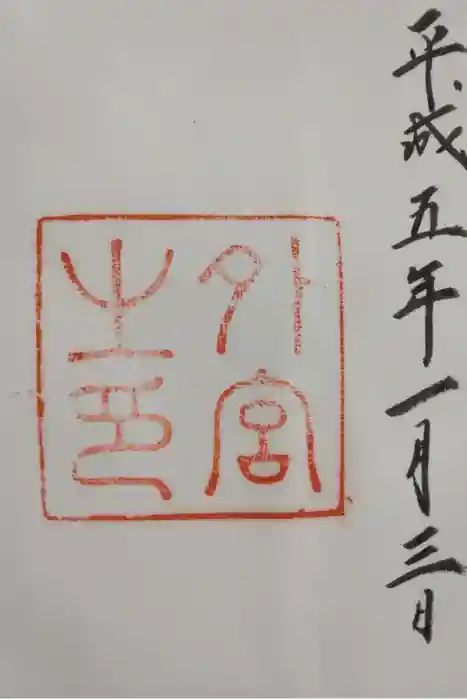 平成五年一月三日
外宮
之印